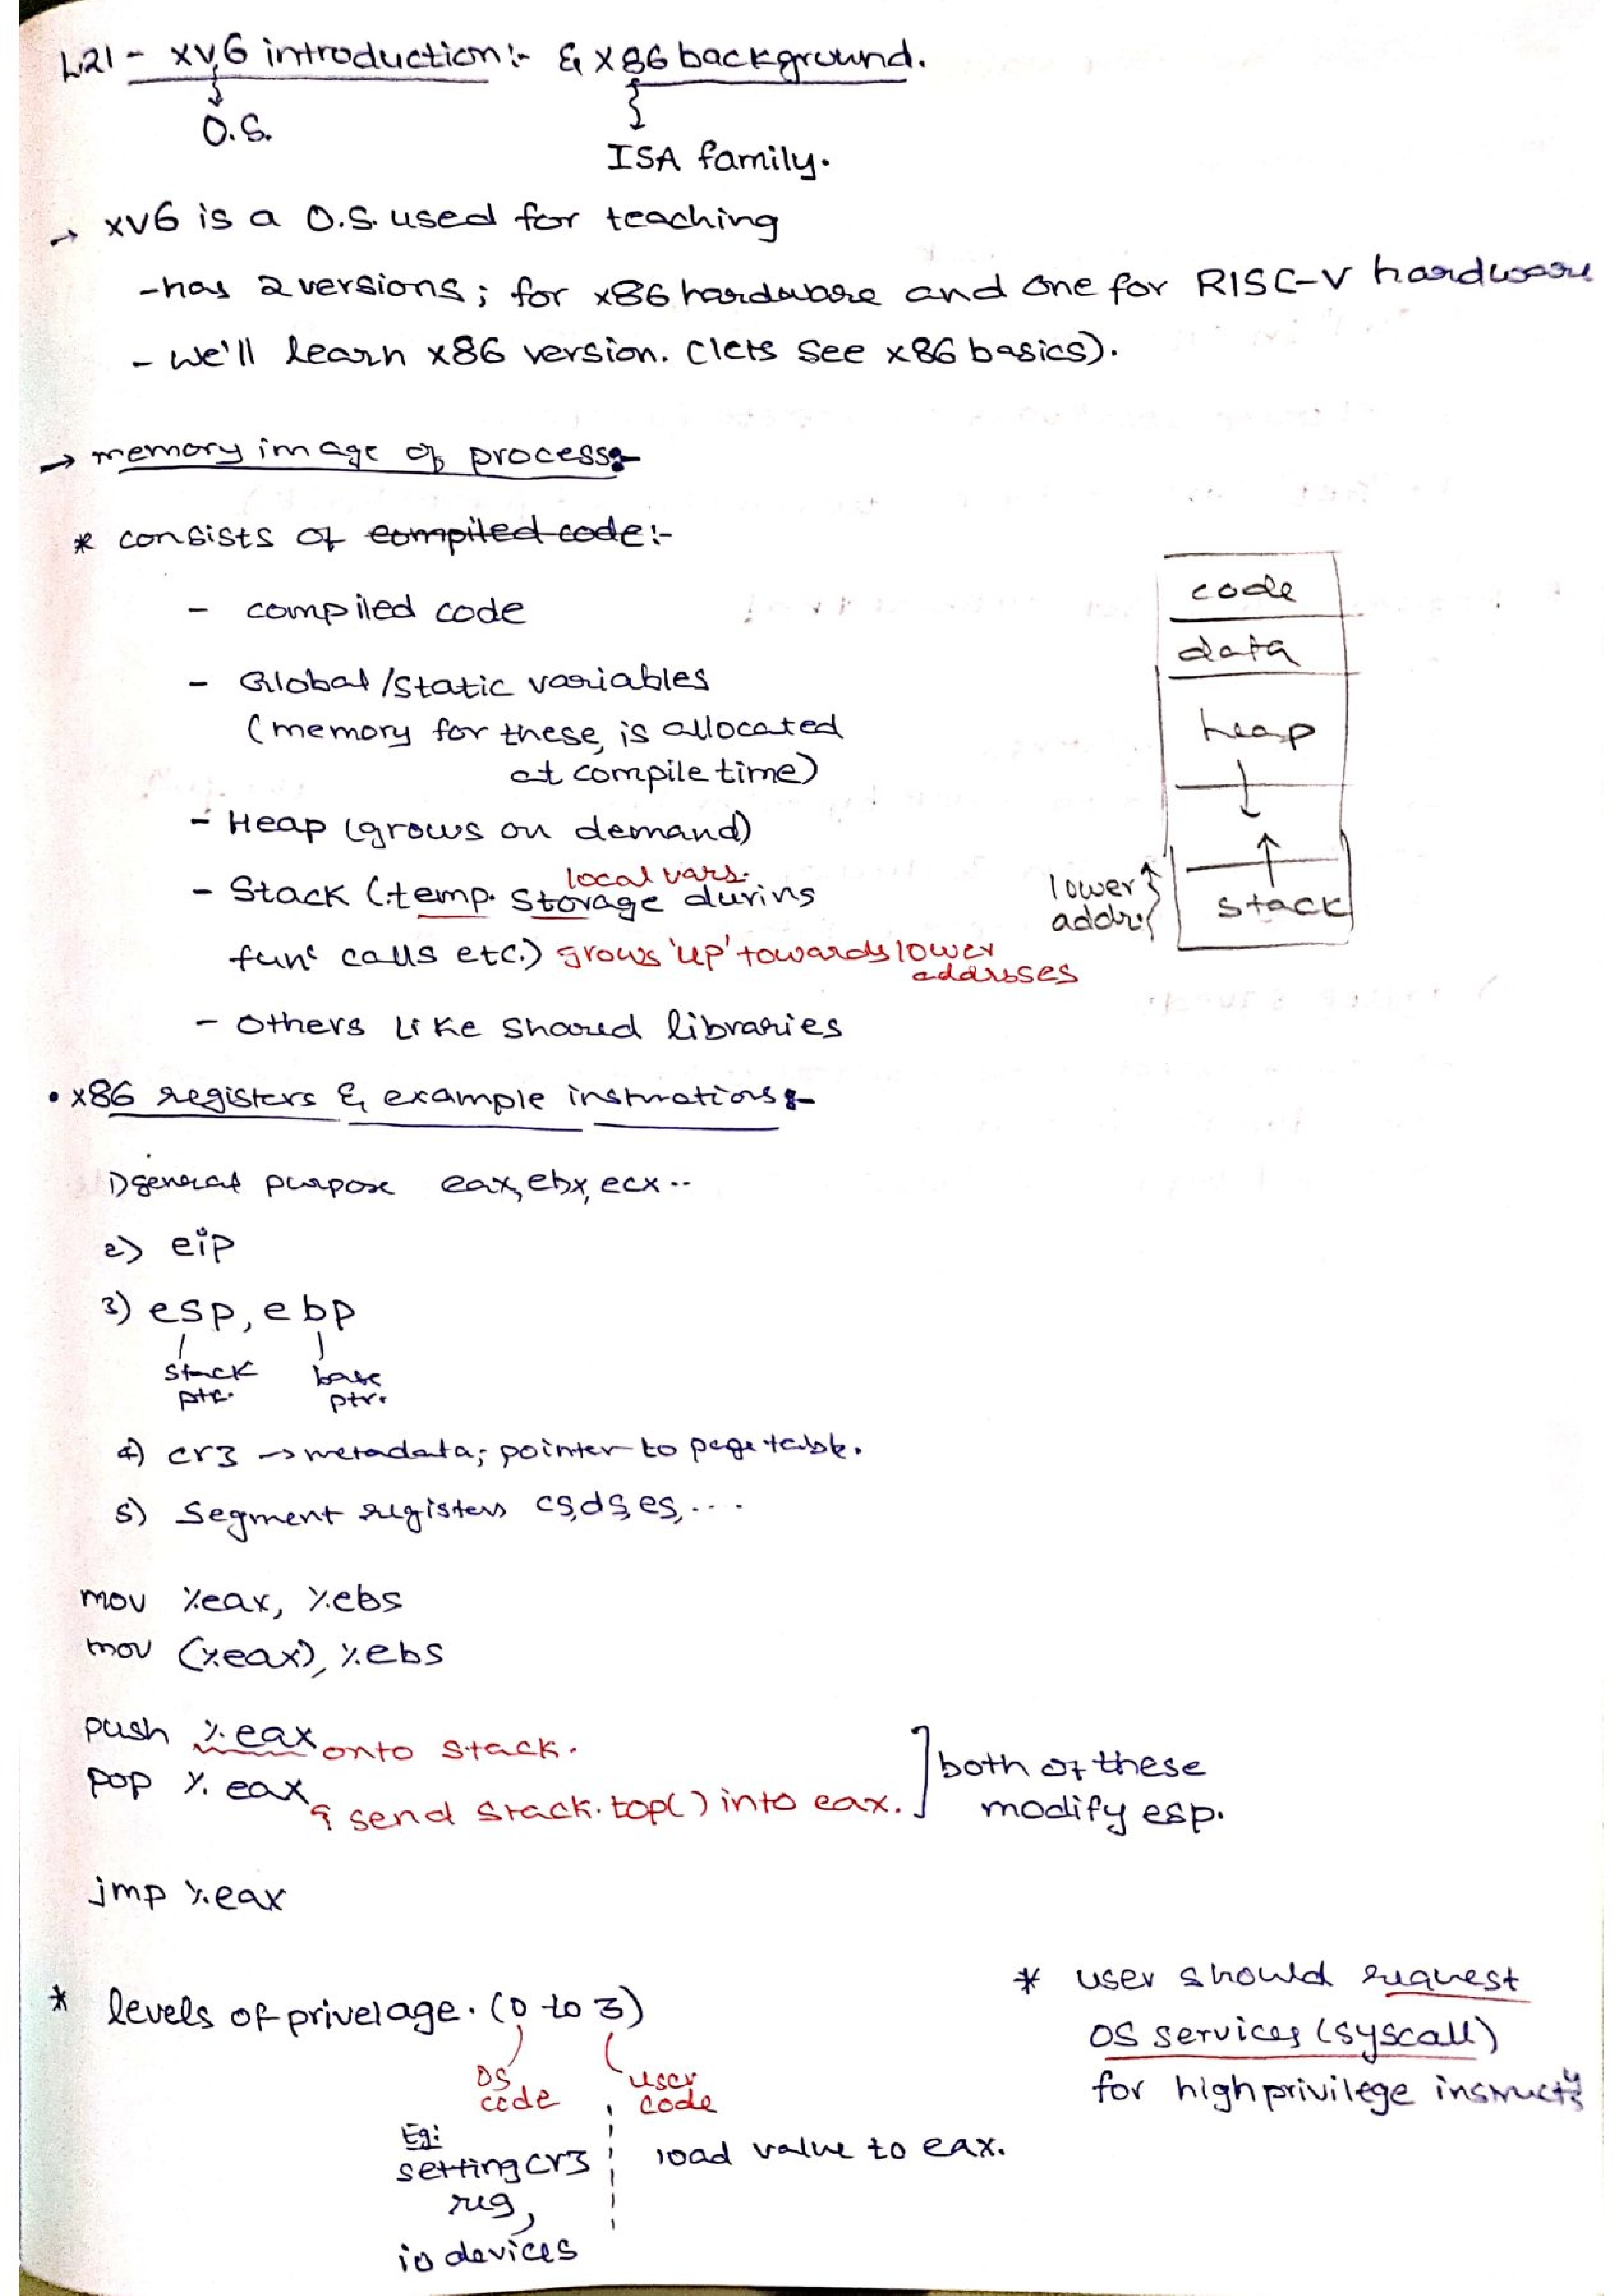 L21 - xv6 introduction:- & x86 background.
O.S.
ISA family.
→ xv6 is a O.S. used for teaching
- has 2 versions; for x86 hardware and one for RISC-V hardware
- we'll learn x86 version. (lets see x86 basics).
→ memory image of process:-
* consists of compiled code:-
- compiled code
- Global/static variables
(memory for these, is allocated
at compile time)
- Heap (grows on demand)
local vars.
- Stack (temp. storage durins
func calls etc.) grows 'up' towards lower
addrsses
- Others like shared libraries
code
data
heap
stack
lower
addr.
• x86 registers & example instrnations:-
1) general purpose eax, ebx, ecx ..
2) eip
3) esp, ebp
stack base
ptr. ptr.
4) cr3 → metadata; pointer to page table.
5) Segment registers cs, ds, es, ....
mov %eax, %ebs
mov (%eax), %ebs
push %eax onto stack.
pop %eax & send stack.top() into eax.
both of these
modify esp.
jmp %eax
* levels of privelage. (0 to 3)
OS user
code code
Eg:
setting cr3 load value to eax.
reg,
io devices
* user should request
OS services (syscall)
for high privilege instructs